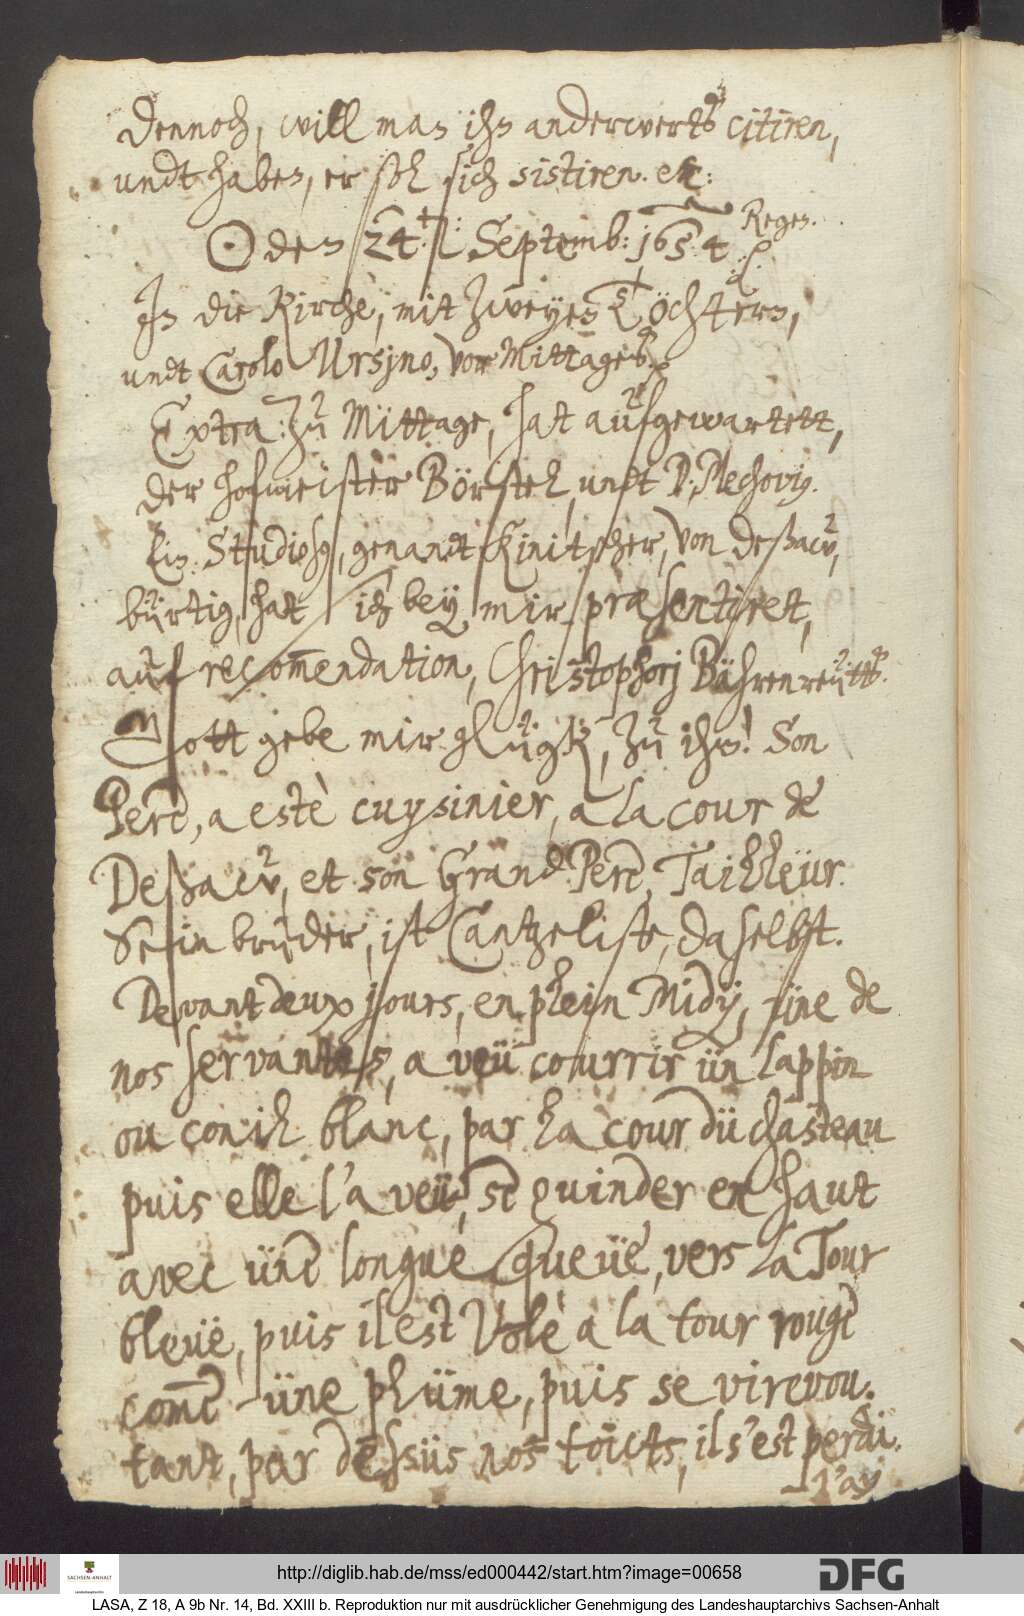 dennoch, will man ihn anderwerts citiren,
undt haben, er soll sich sistiren. etc:
☉ den 24. Septemb: 1654. Regen.
In die Kirche, mit zweyen Töchtern,
undt Carolo Ursino, vor Mittages.
Extra: zu Mittage, hat aufgewartett,
der hofmeister Börstel, undt P. Plechovig.
Ein Studiosus, genandt Kinitscher, von Deßaw,
bürtig, hat sich bey mir præsentiret,
auf recom̄endation, Christophorj Bährenreütts.
Gott gebe mir glügk, zu ihm! Son
Pere, a estè cuysinier, a la cour de
Deßaw, et son Grand Pere, Tailleür.
Sein bruder, ist Cantzelist, daselbst.
Devant deux jours, en plein Midy, üne de
nos servantes, a veü courrir ün lappin
ou conil blanc, par la cour dü chasteau
puis elle l'a veü, se guinder en haut
avec üne longue queuë, vers la Tour
bleuë, puis il est volè a la tour rouge
com̄e üne plüme, puis se virevou-
tant, par dessüs nos toicts, il s'est perdü.
J'ay
http://diglib.hab.de/mss/ed000442/start.htm?image=00658
DFG
SACHSEN-ANHALT
LASA, Z 18, A 9b Nr. 14, Bd. XXIII b. Reproduktion nur mit ausdrücklicher Genehmigung des Landeshauptarchivs Sachsen-Anhalt